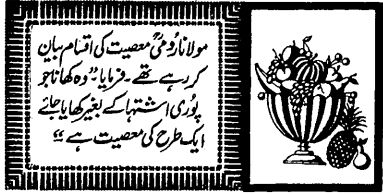 مولانا رومیؒ معصیت کی اقسام بیان
کر رہے تھے ۔ فرمایا ”وہ کھانا جو
پوری اشتہا کے بغیر کھایا جائے
ایک طرح کی معصیت ہے“